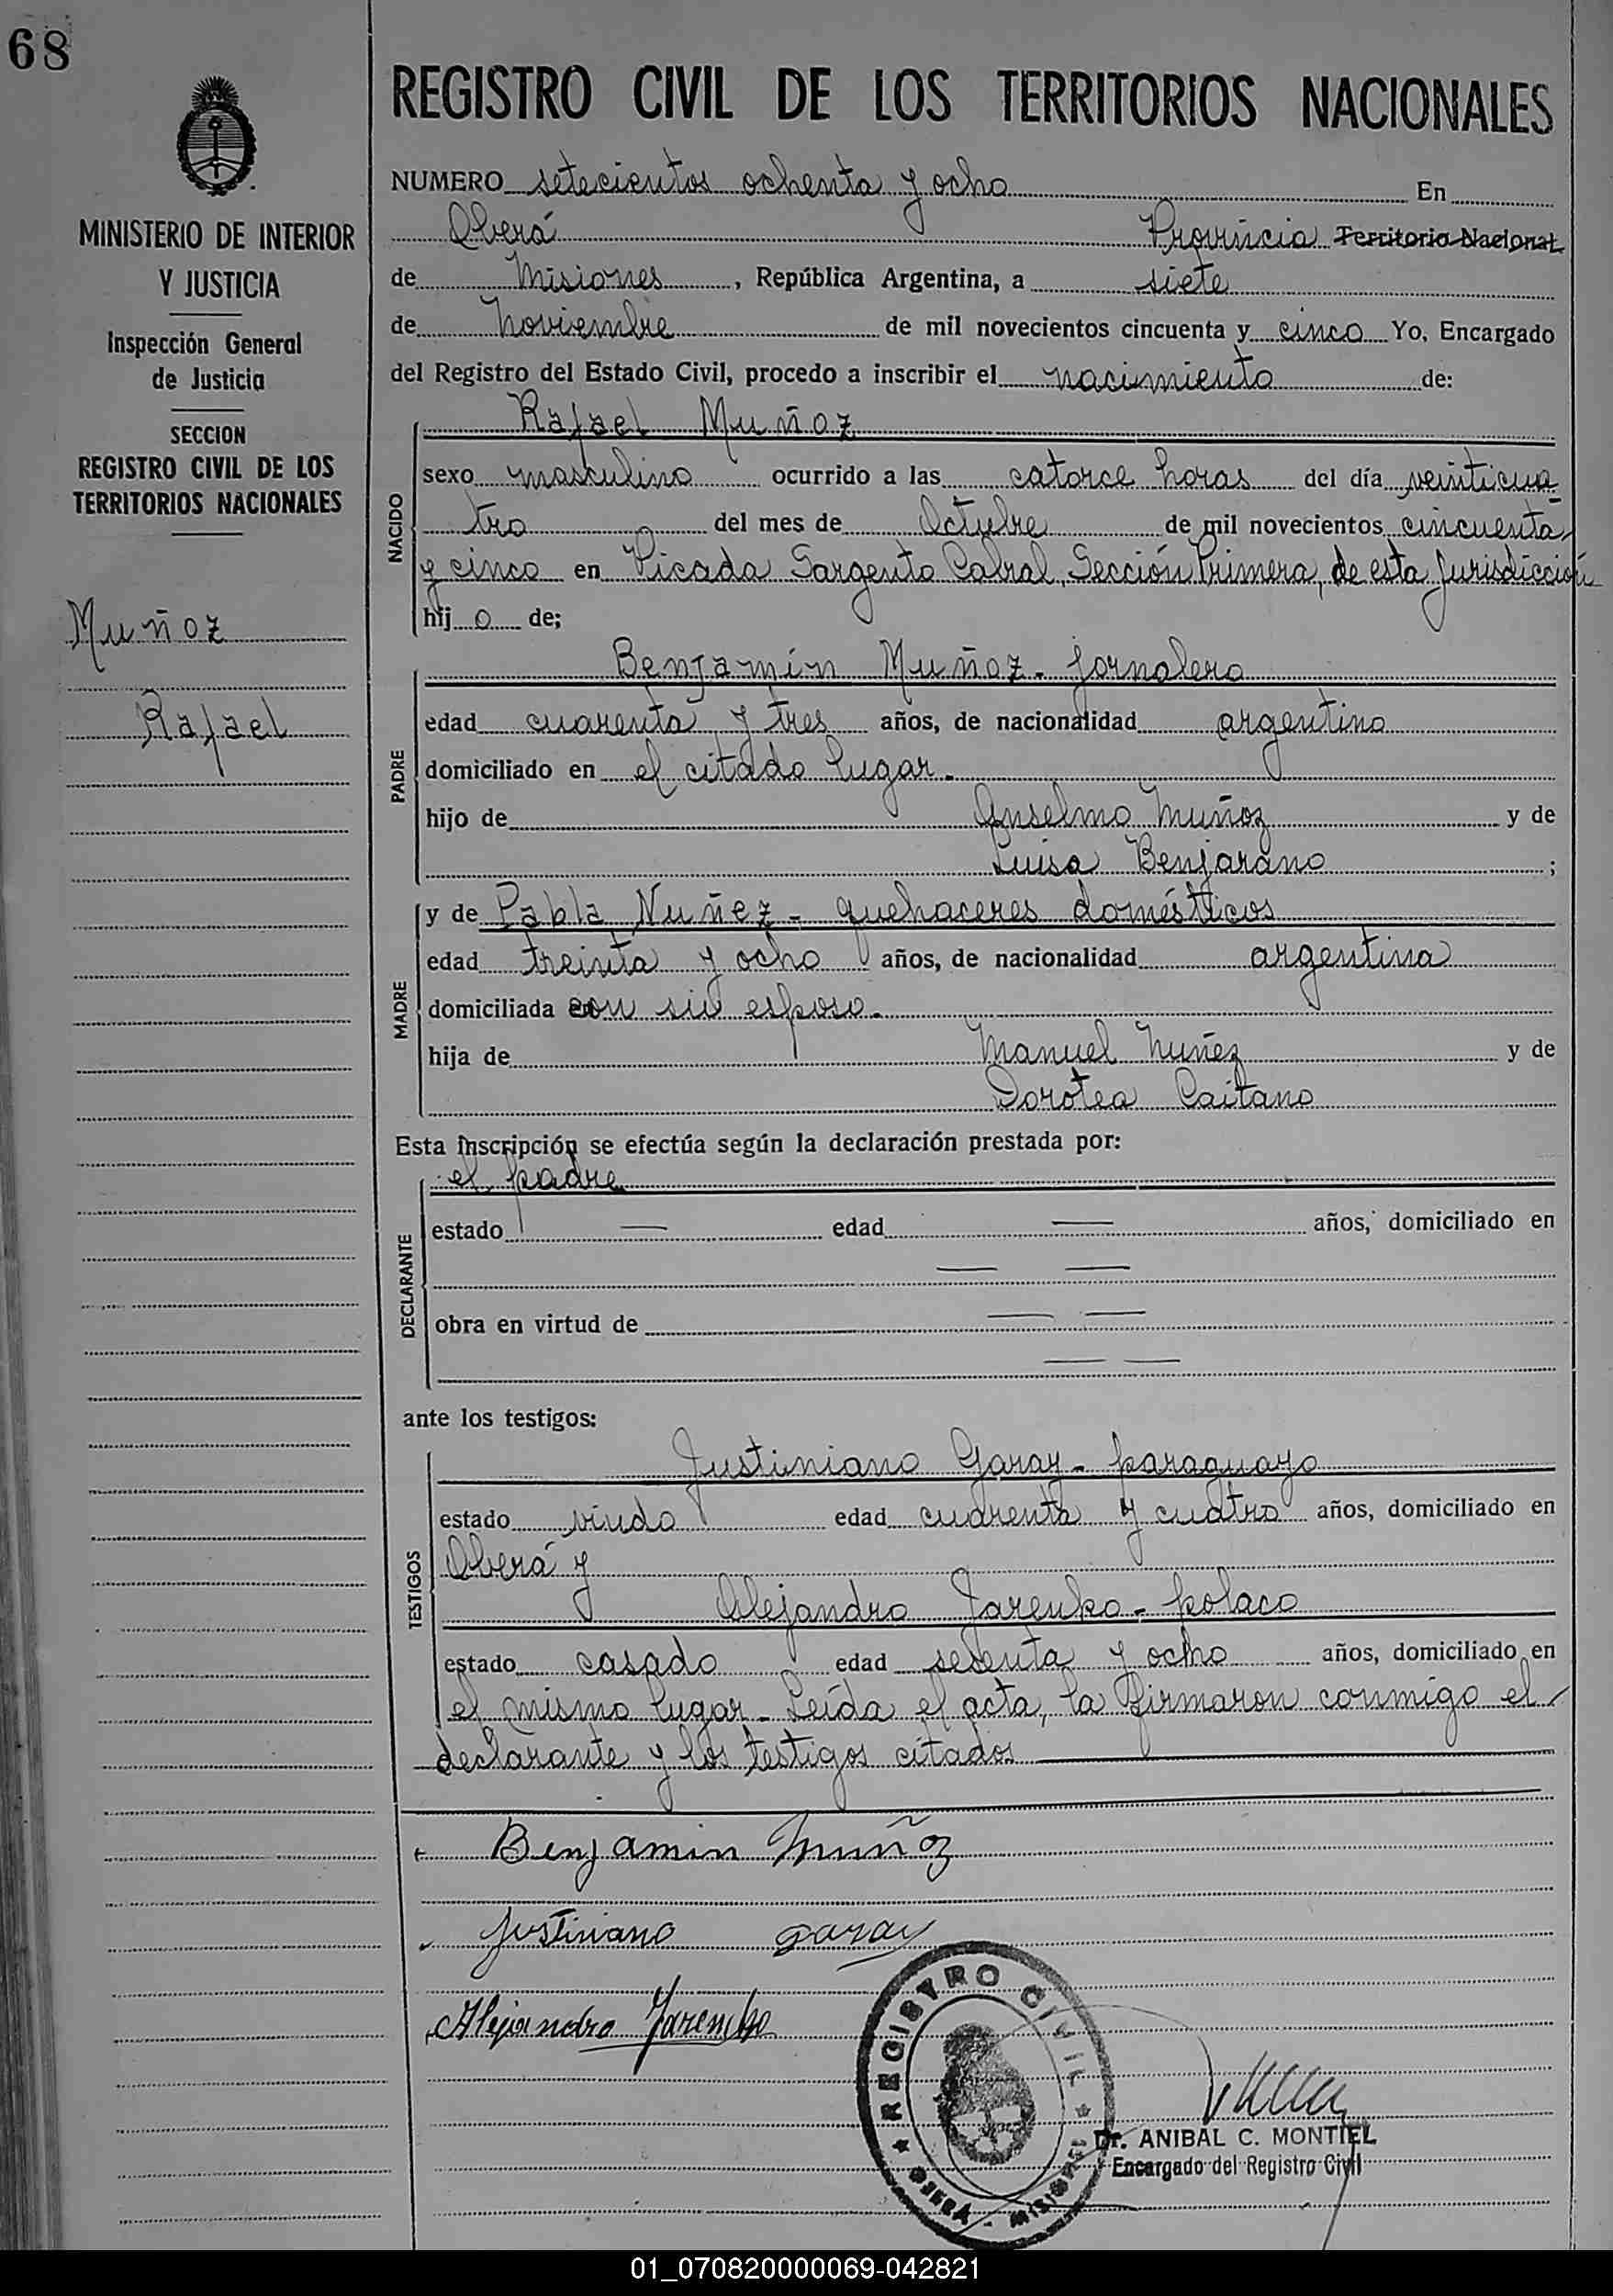 68
REGISTRO CIVIL DE LOS TERRITORIOS NACIONALES
MINISTERIO DE INTERIOR
Y JUSTICIA
Inspección General
de Justicia
SECCION
REGISTRO CIVIL DE LOS
TERRITORIOS NACIONALES
Muñoz
Rafael
NUMERO setecientos ochenta y ocho En
Oberá Provincia Territorio Nacional
de Misiones, República Argentina, a siete
de Noviembre de mil novecientos cincuenta y cinco Yo, Encargado
del Registro del Estado Civil, procedo a inscribir el nacimiento de:
NACIDO
Rafael Muñoz
sexo masculino ocurrido a las catorce horas del día veinticua-
tro del mes de Octubre de mil novecientos cincuenta
y cinco en Picada Sargento Cabral, Sección Primera, de esta Jurisdicción
hij o de;
PADRE
Benjamín Muñoz - jornalero
edad cuarenta y tres años, de nacionalidad argentino
domiciliado en el citado lugar.
hijo de Anselmo Muñoz y de
Luisa Benjarano ;
MADRE
y de Pabla Nuñez - quehaceres domésticos
edad treinta y ocho años, de nacionalidad argentina
domiciliada con su esposo.
hija de Manuel Nuñez y de
Dorotea Caitano
Esta inscripción se efectúa según la declaración prestada por:
DECLARANTE
el padre
estado — edad — años, domiciliado en
— —
obra en virtud de — —
— —
ante los testigos:
TESTIGOS
Justiniano Garay - paraguayo
estado viudo edad cuarenta y cuatro años, domiciliado en
Oberá y
Alejandro Jarenko - polaco
estado casado edad sesenta y ocho años, domiciliado en
el mismo lugar - Leída el acta, la firmaron conmigo el
declarante y los testigos citados
Benjamin Muñoz
Justiniano Garay
Alejandro
REGISTRO CIVIL
OBERÁ - MISIONES
Dr. ANIBAL C. MONTIEL
Encargado del Registro Civil
01_070820000069-042821